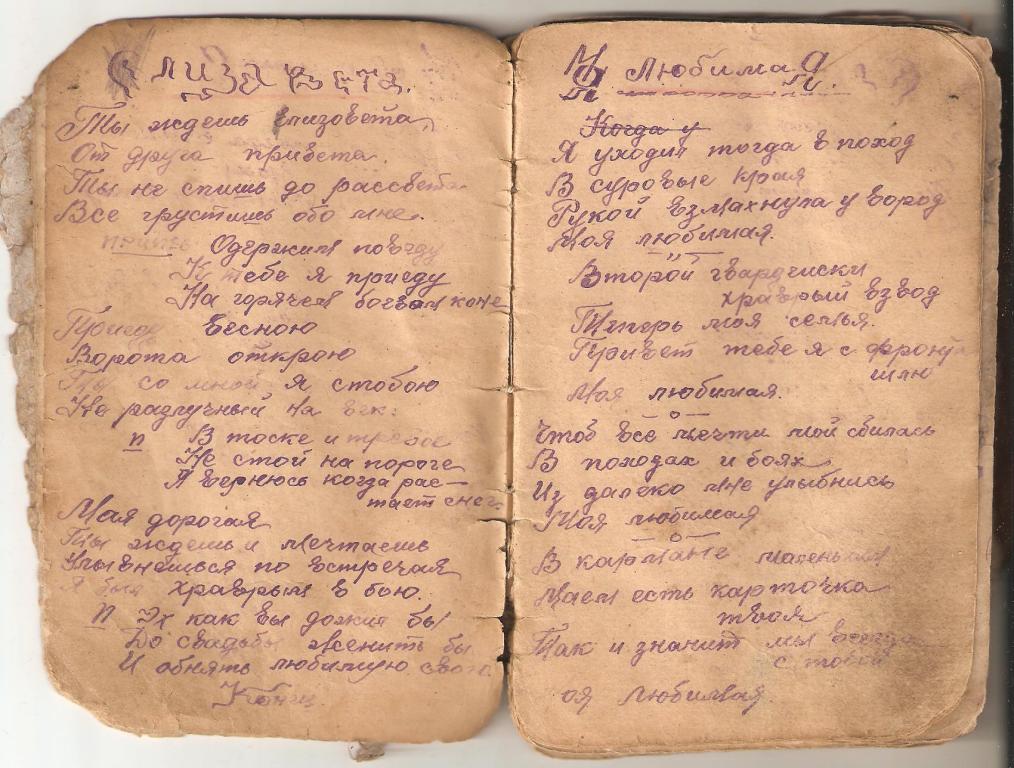 Елизавета.
Ты ждешь Елизовета,
От друга привета.
Ты не спишь до рассвета
Все грустишь обо мне.
припев Одержим победу
К тебе я приеду
На горячем боевом коне
Приеду весною
Ворота открою
Ты со мной я стобою
Не разлучный на век.
п В тоске и тревоге
Не стой на пороге
Я вернюсь когда рас-
тает снег.
Мая дорогая
Ты ждешь и мечтаешь
Улыбнешься по встречая
Я был храбрым в бою.
П Эх как бы дожит бы
До свадьбы женить бы
И обнять любимую свою
Конец
Моя Любимая.
Когда у
Я уходил тогда в поход
В суровые края
Рукой взмахнула у вород
Моя любимая.
Второй гвардейски
храбрый взвод
Тяперь моя семья.
Привет тебе я с фронта
шлю
Моя любимая.
Чтоб все мечти мой сбилась
В походах и боях
Из далеко мне улыбнись
Моя любимая
В кармане маленьким
Маем есть карточка
твоя
Так и значит мы всегда
с тобой
оя любимая.